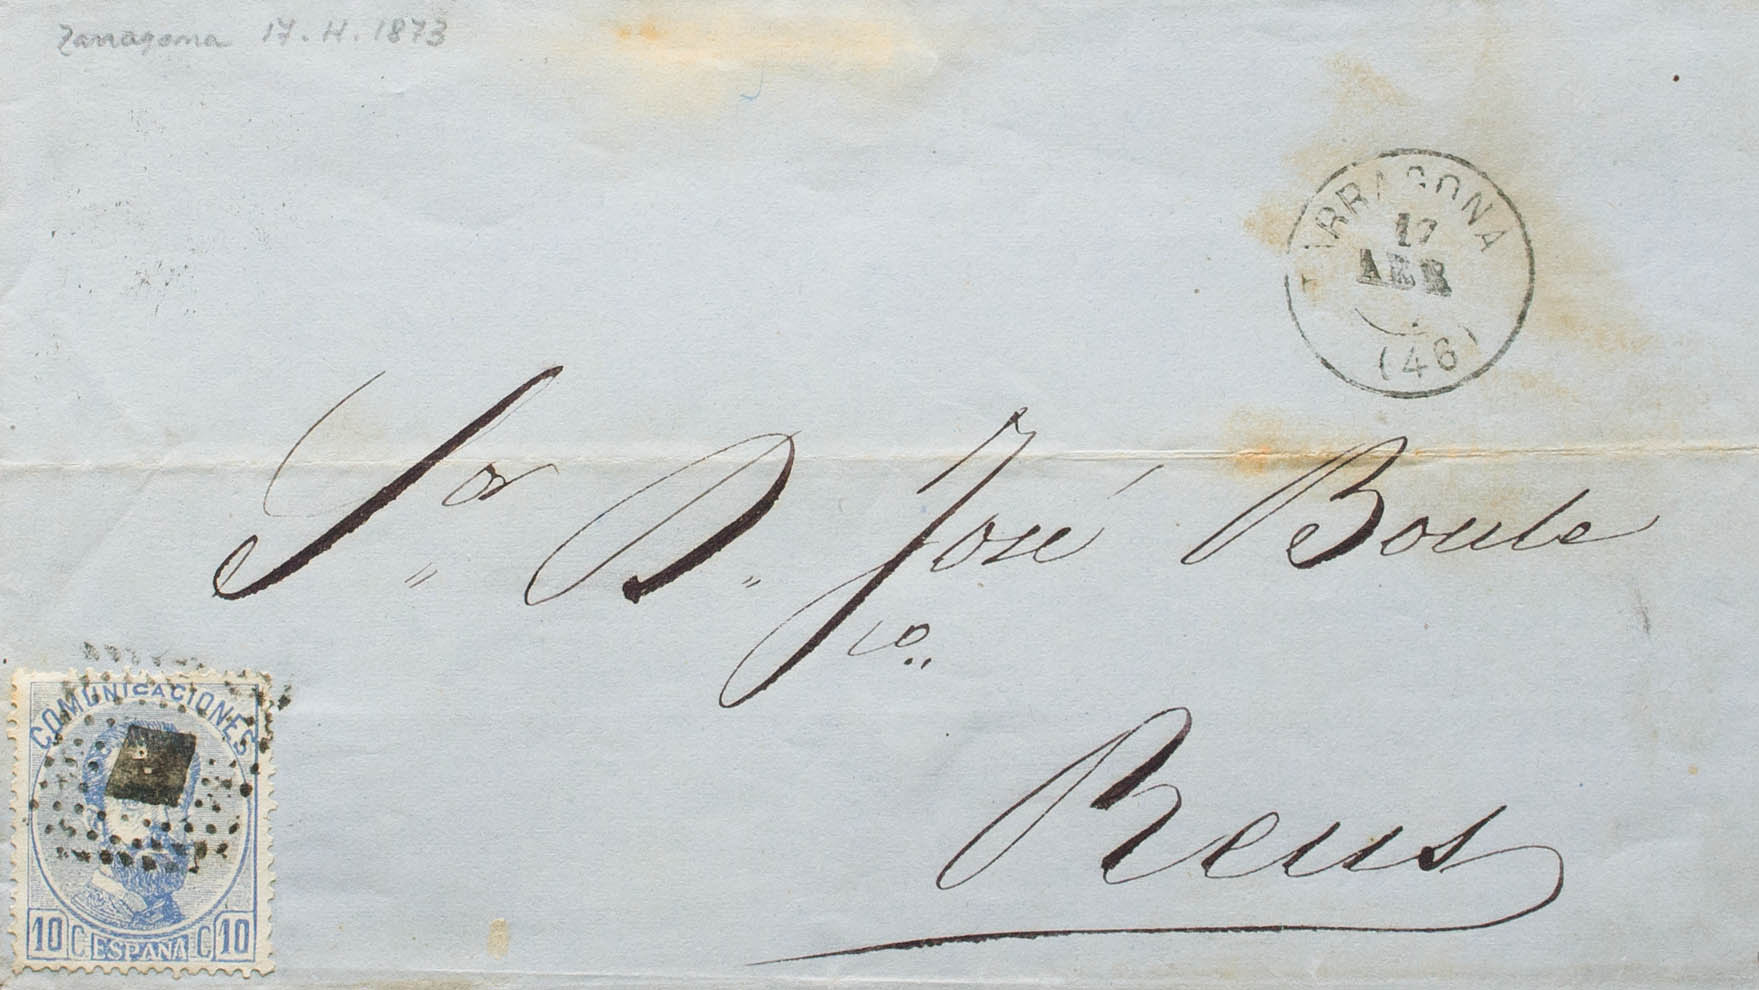 Tarragona 17.4.1873
TARRAGONA
17
ABR
(46)
Sor D. José Boule
Reus
COMUNICACIONES
10 C ESPAÑA C 10